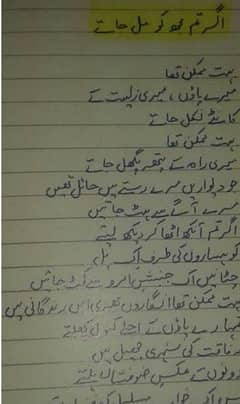 اگر تم مجھ کو مل جاتے
بہت ممکن تھا
میرے پاؤں، میری زیست کے
کانٹے نکل جاتے
بہت ممکن تھا
میری راہ کے پتھر پگھل جاتے
جو دیواریں میرے رستے میں حائل تھیں
میرے آگے سے ہٹ جاتیں
اگر تم آنکھ اٹھا کر دیکھ لیتے
کوہساروں کی طرف اک پل
چٹانیں اک جنبشِ ابرو سے کٹ جاتیں
بہت ممکن تھا انگاروں بھری اس زندگانی میں
تمہارے پاؤں کے اجلے کنول کھلتے
رفاقت کی سنہری جھیل میں
دونوں کے عکس